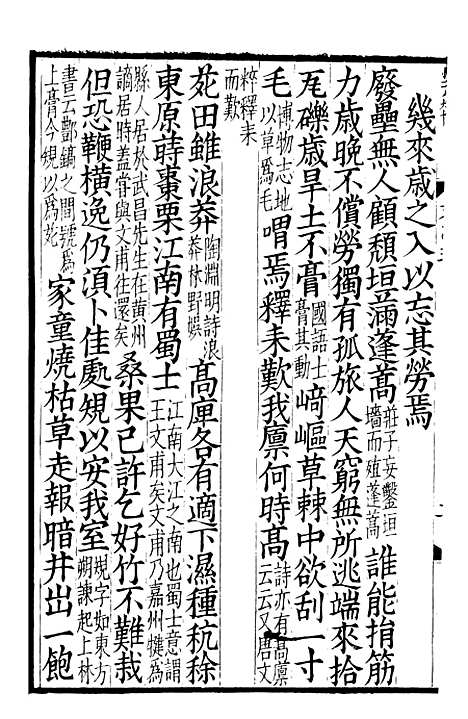 幾來歲之入以志其勞焉
廢壘無人顧頹垣滿蓬蒿莊子妄鑿垣墻而殖蓬蒿誰能捐筋
力歲晚不償勞獨有孤旅人天窮無所逃端來拾
瓦礫歲旱土不膏國語土膏其動崎嶇草棘中欲刮一寸
毛博物志地以草爲毛喟焉釋耒歎我廩何時髙詩亦有髙廩云云又唐文
粹釋耒而歎
荒田雖浪莽陶淵明詩浪莽林野娱髙厓各有適下濕種秔稌
東原蒔棗栗江南有蜀士江南大江之南也蜀士意謂王文甫矣文甫乃嘉州犍爲
縣人居於武昌先生在黄州謫居時葢嘗與文甫往還矣桑果已許乞好竹不難栽
但恐鞭橫逸仍湏卜佳處規以安我室規字如東方朔諫起上林
書云酆鎬之間號爲土膏今規以爲苑家童燒枯草走報暗井出一飽